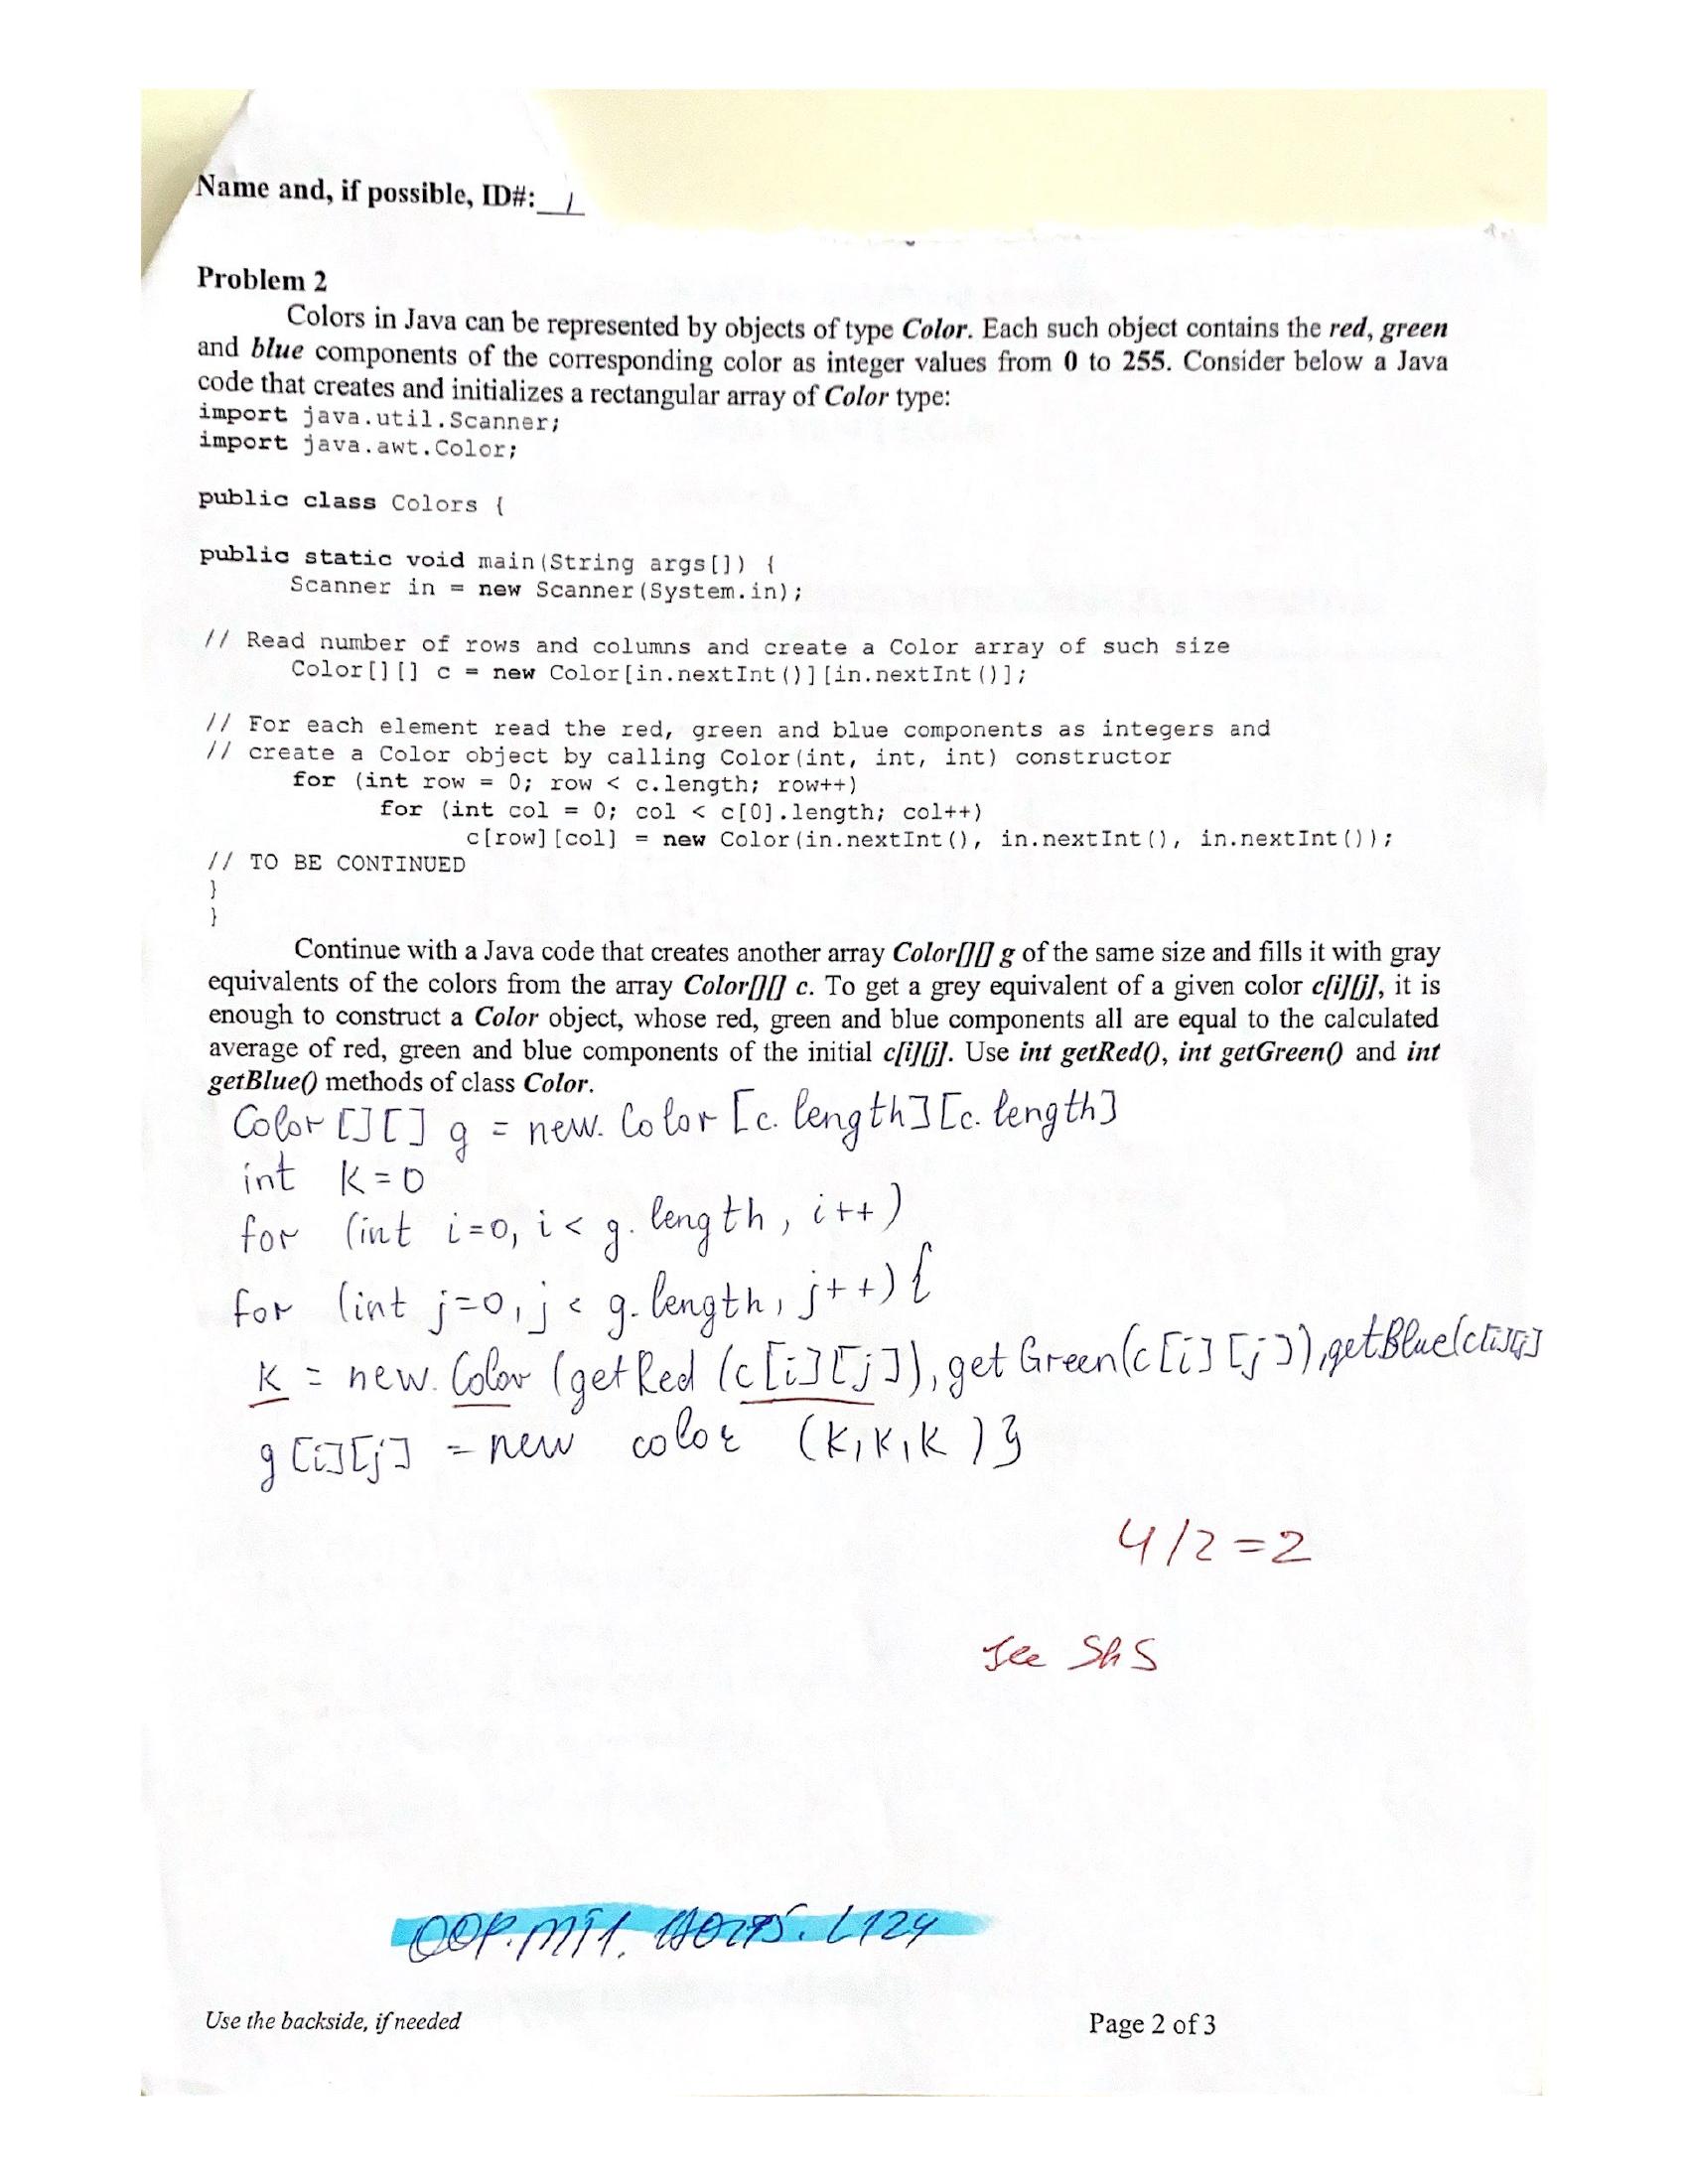 Name and, if possible, ID#:
Problem 2
Colors in Java can be represented by objects of type Color. Each such object contains the red, green
and blue components of the corresponding color as integer values from 0 to 255. Consider below a Java
code that creates and initializes a rectangular array of Color type:
import java.util.Scanner;
import java.awt.Color;
public class Colors {
public static void main(String args[]) {
Scanner in = new Scanner(System.in);
// Read number of rows and columns and create a Color array of such size
Color[][] c = new Color[in.nextInt()][in.nextInt()];
// For each element read the red, green and blue components as integers and
// create a Color object by calling Color(int, int, int) constructor
for (int row = 0; row < c.length; row++)
for (int col = 0; col < c[0].length; col++)
c[row][col] = new Color(in.nextInt(), in.nextInt(), in.nextInt());
// TO BE CONTINUED
}
}
Continue with a Java code that creates another array Color[][] g of the same size and fills it with gray
equivalents of the colors from the array Color[][] c. To get a grey equivalent of a given color c[i][j], it is
enough to construct a Color object, whose red, green and blue components all are equal to the calculated
average of red, green and blue components of the initial c[i][j]. Use int getRed(), int getGreen() and int
getBlue() methods of class Color.
Color [][] g = new. Color [c. length][c. length]
int k=0
for (int i=0, i < g. length, i++)
for (int j=0, j < g. length, j++) {
k = new. Color (getRed (c[i][j]), get Green(c[i][j]), getBlue(c[i][j]
g[i][j] = new color (k, k, k ) }
4/2=2
See ShS
Use the backside, if needed
Page 2 of 3